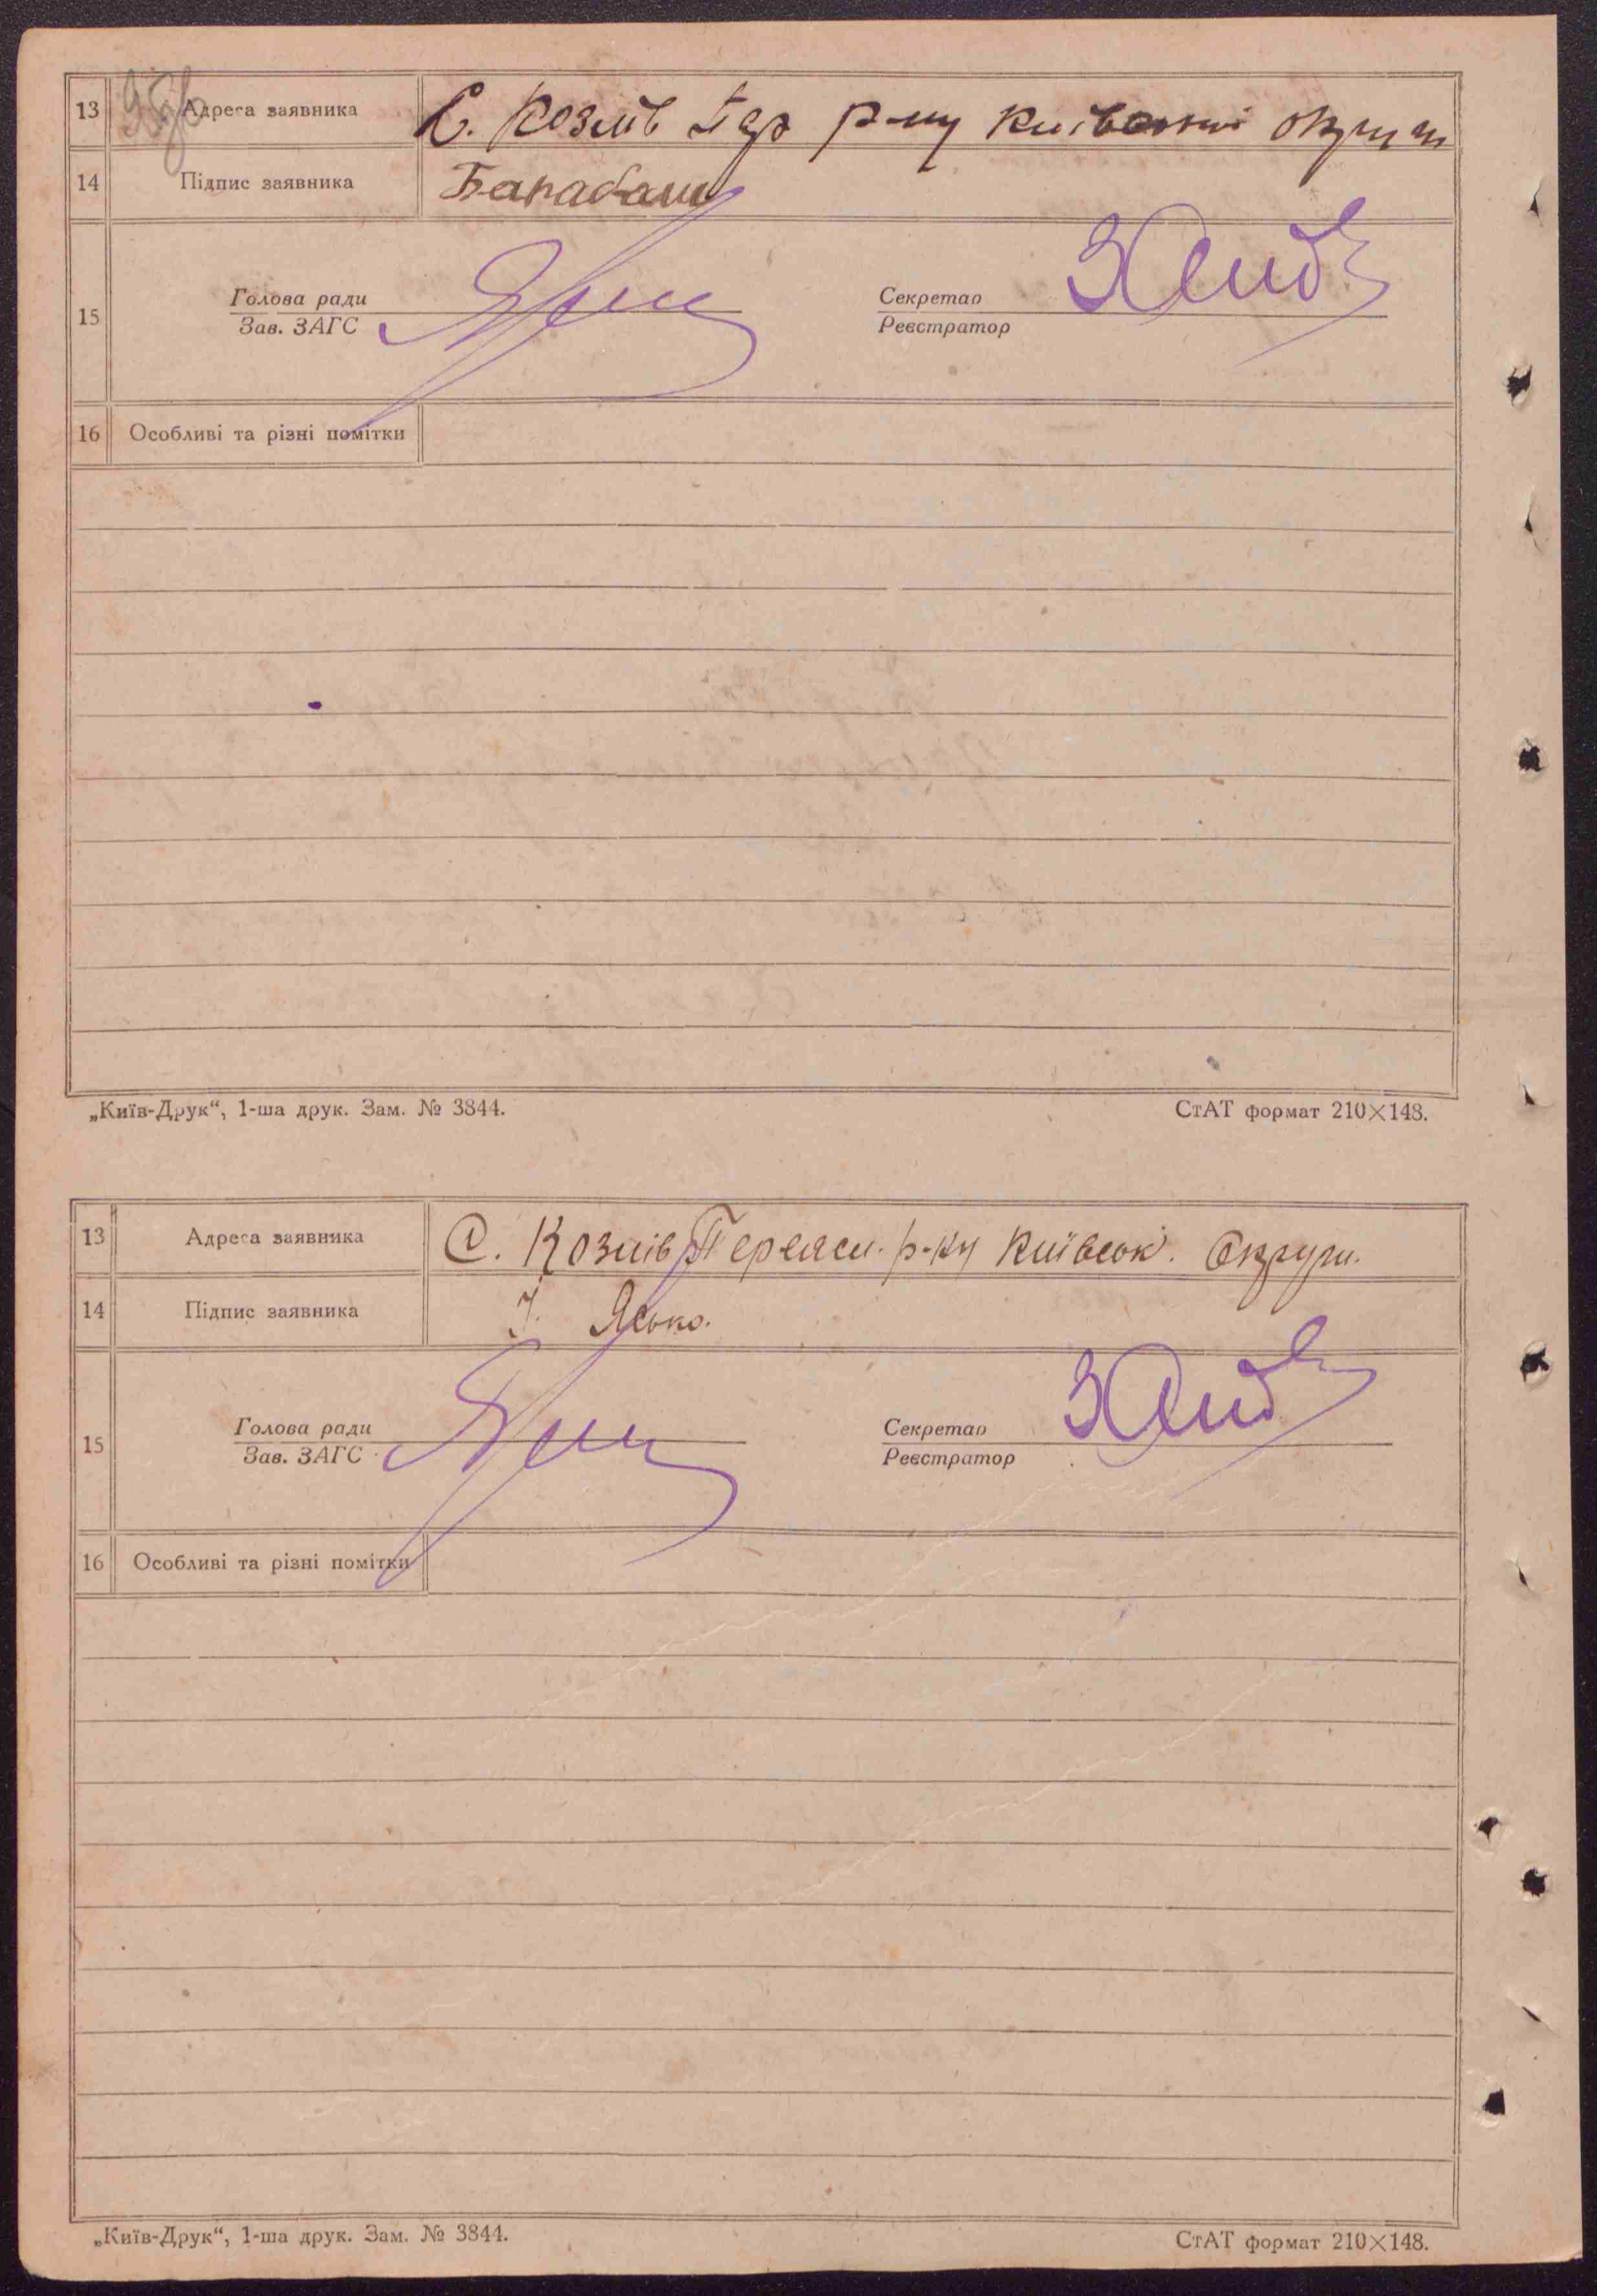 13 Адреса заявника С. Козлів Пер р-ну Київської округи
14 Підпис заявника Барабаш
15 Голова ради
Зав. ЗАГС
Секретар
Реєстратор
16 Особливі та різні помітки
„Київ-Друк“, 1-ша друк. Зам. № 3844. СтАТ формат 210×148.
13 Адреса заявника С. Козлів Переясл. р-ну Київськ. Округи.
14 Підпис заявника Ясько.
15 Голова ради
Зав. ЗАГС
Секретар
Реєстратор
16 Особливі та різні помітки
„Київ-Друк“, 1-ша друк. Зам. № 3844. СтАТ формат 210×148.